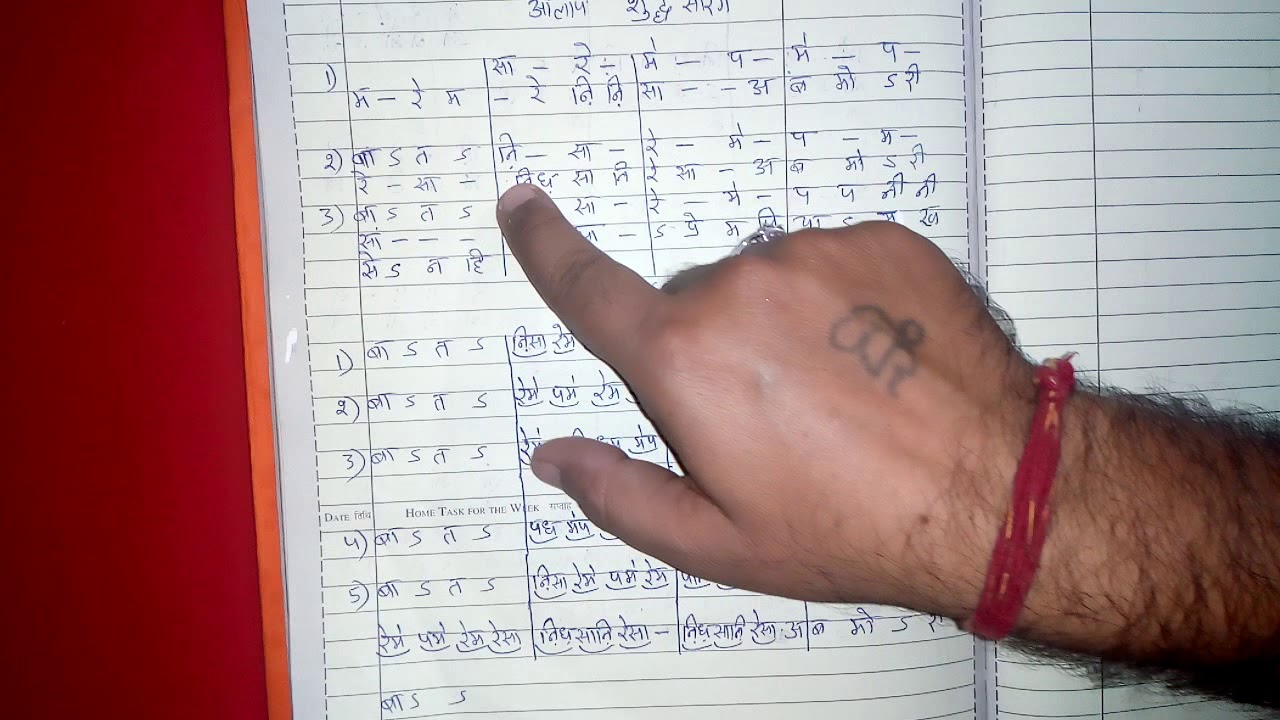 आलाप शुद्ध सारंग
1) सा - रे - मे - प - मे - प -
म - रे म - रे नि़ नि़ सा - - अ ब मो ऽ री
२) बा ऽ त ऽ नि़ - सा - रे - मे - प - म -
रे - सा - नि़ध़ सा नि रे सा - अ ब मो ऽ री
3) बा ऽ त ऽ सा - रे - मे - प प नी नी
सां - - - ऽ प्रे म
से ऽ न हि
1) बा ऽ त ऽ नि़सा रेमे
२) बा ऽ त ऽ रेमे पमे रेम
3) बा ऽ त ऽ मेप
DATE तिथि HOME TASK FOR THE WEEK सप्ताह
५) बा ऽ त ऽ पध मेप
5) बा ऽ त ऽ नि़सा रेमे पमे रेम
रेमे पमे रेम रेसा नि़ध़ सानि रेसा - नि़ध़ सानि रेसा अ ब मो ऽ री
बा ऽ ऽ